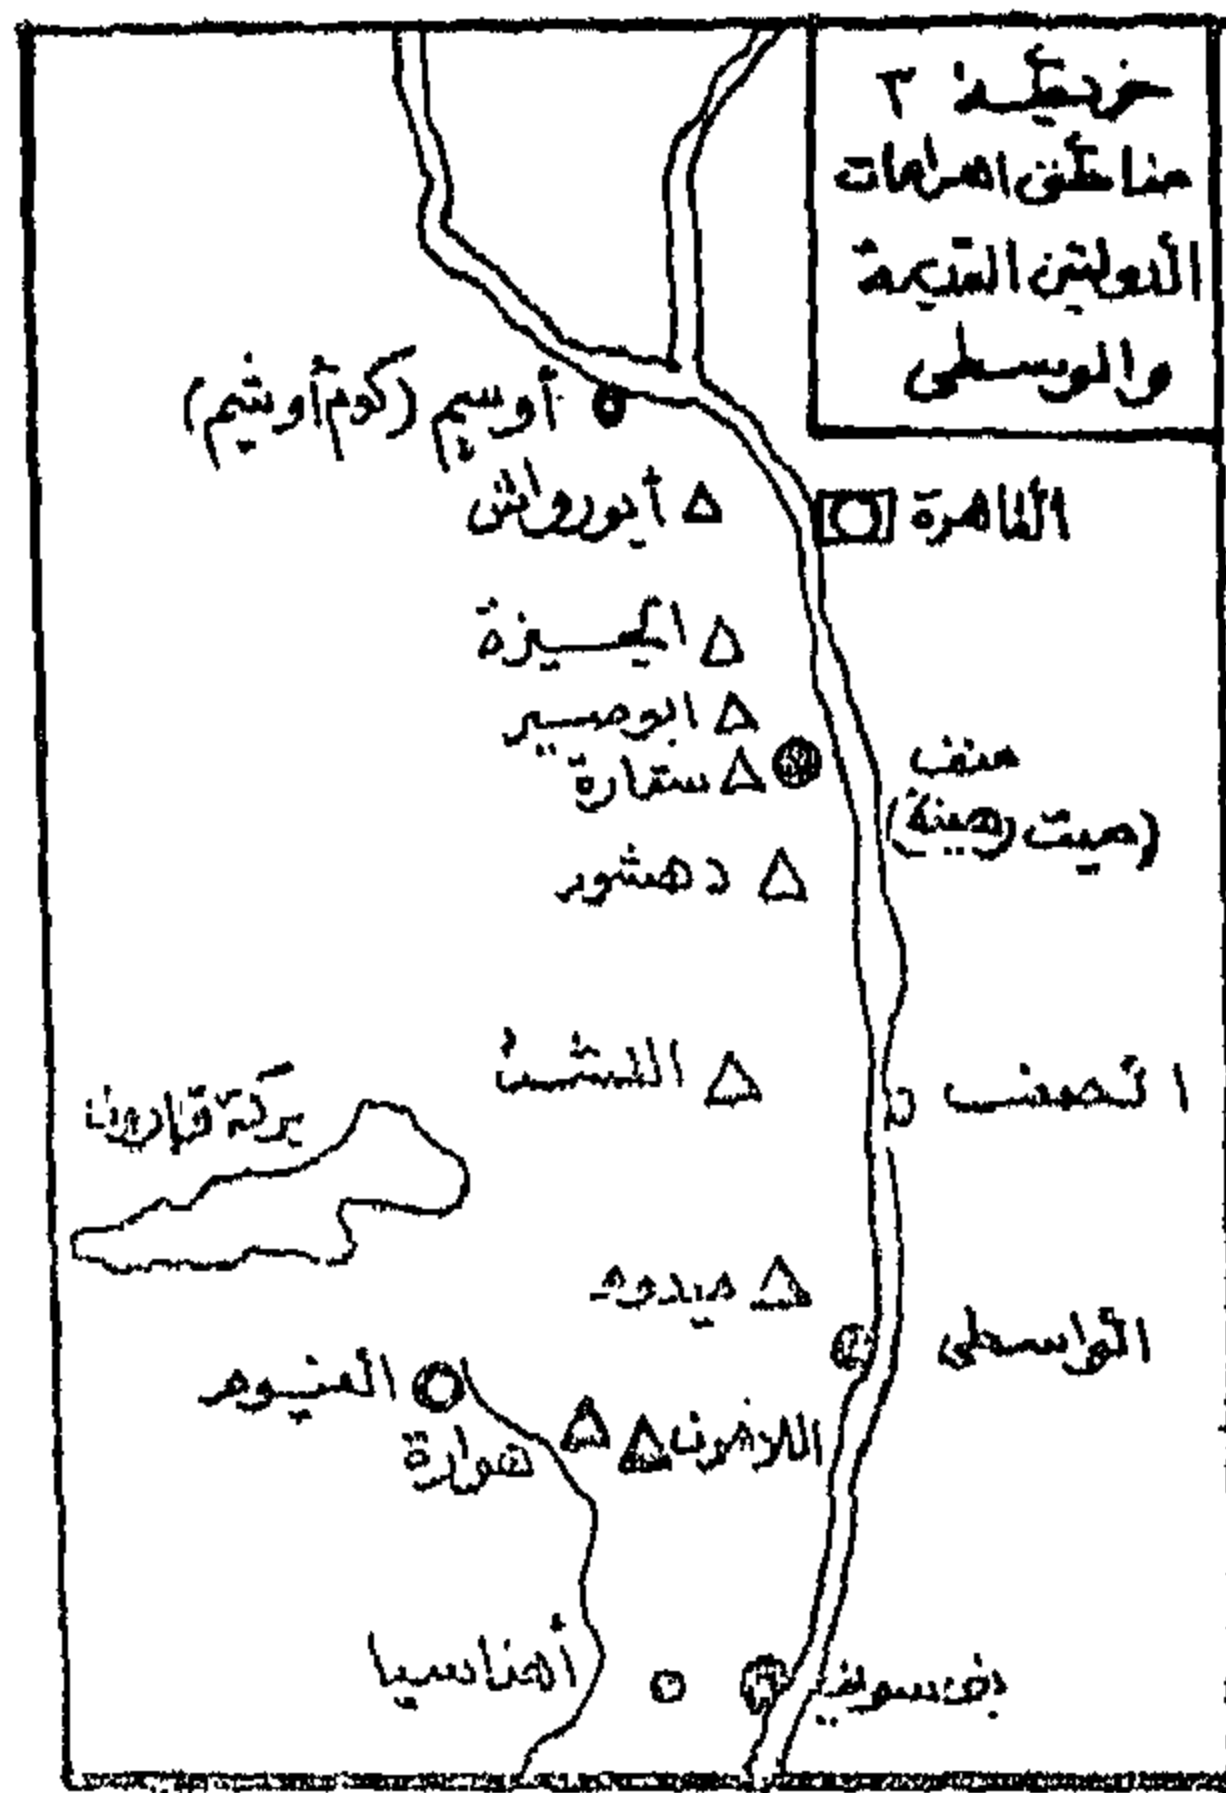 خريطة ٣
مناطق اهرامات
الدولتين القديمة
والوسطى
أوسيم (كوم أوشيم)
أبورواش
القاهرة
الجيزة
ابوصير
سقارة
منف
(ميت رهينة)
دهشور
اللشت
الصف
بركة قارون
ميدوم
الواسطى
الفيوم
هوارة
اللاهون
أهناسيا
بنى سويف